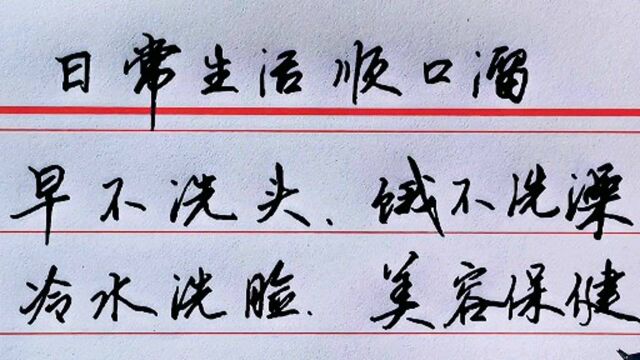 日常生活顺口溜
早不洗头、饿不洗澡
冷水洗脸、美容保健